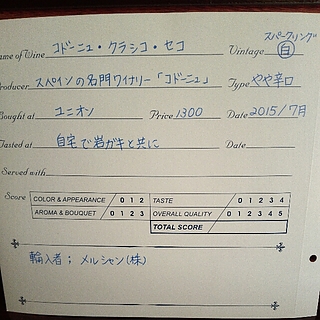 スパークリング
Name of Wine コドーニュ・クラシコ・セコ Vintage 白
Producer スペインの名門ワイナリー「コドーニュ」 Type やや辛口
Bought at ユニオン Price 1300 Date 2015/7月
Tasted at 自宅で岩ガキと共に Date
Served with
Score COLOR & APPEARANCE / 0 1 2 TASTE / 0 1 2 3 4
AROMA & BOUQUET / 0 1 2 3 OVERALL QUALITY / 0 1 2 3 4 5
TOTAL SCORE
輸入者; メルシャン(株)